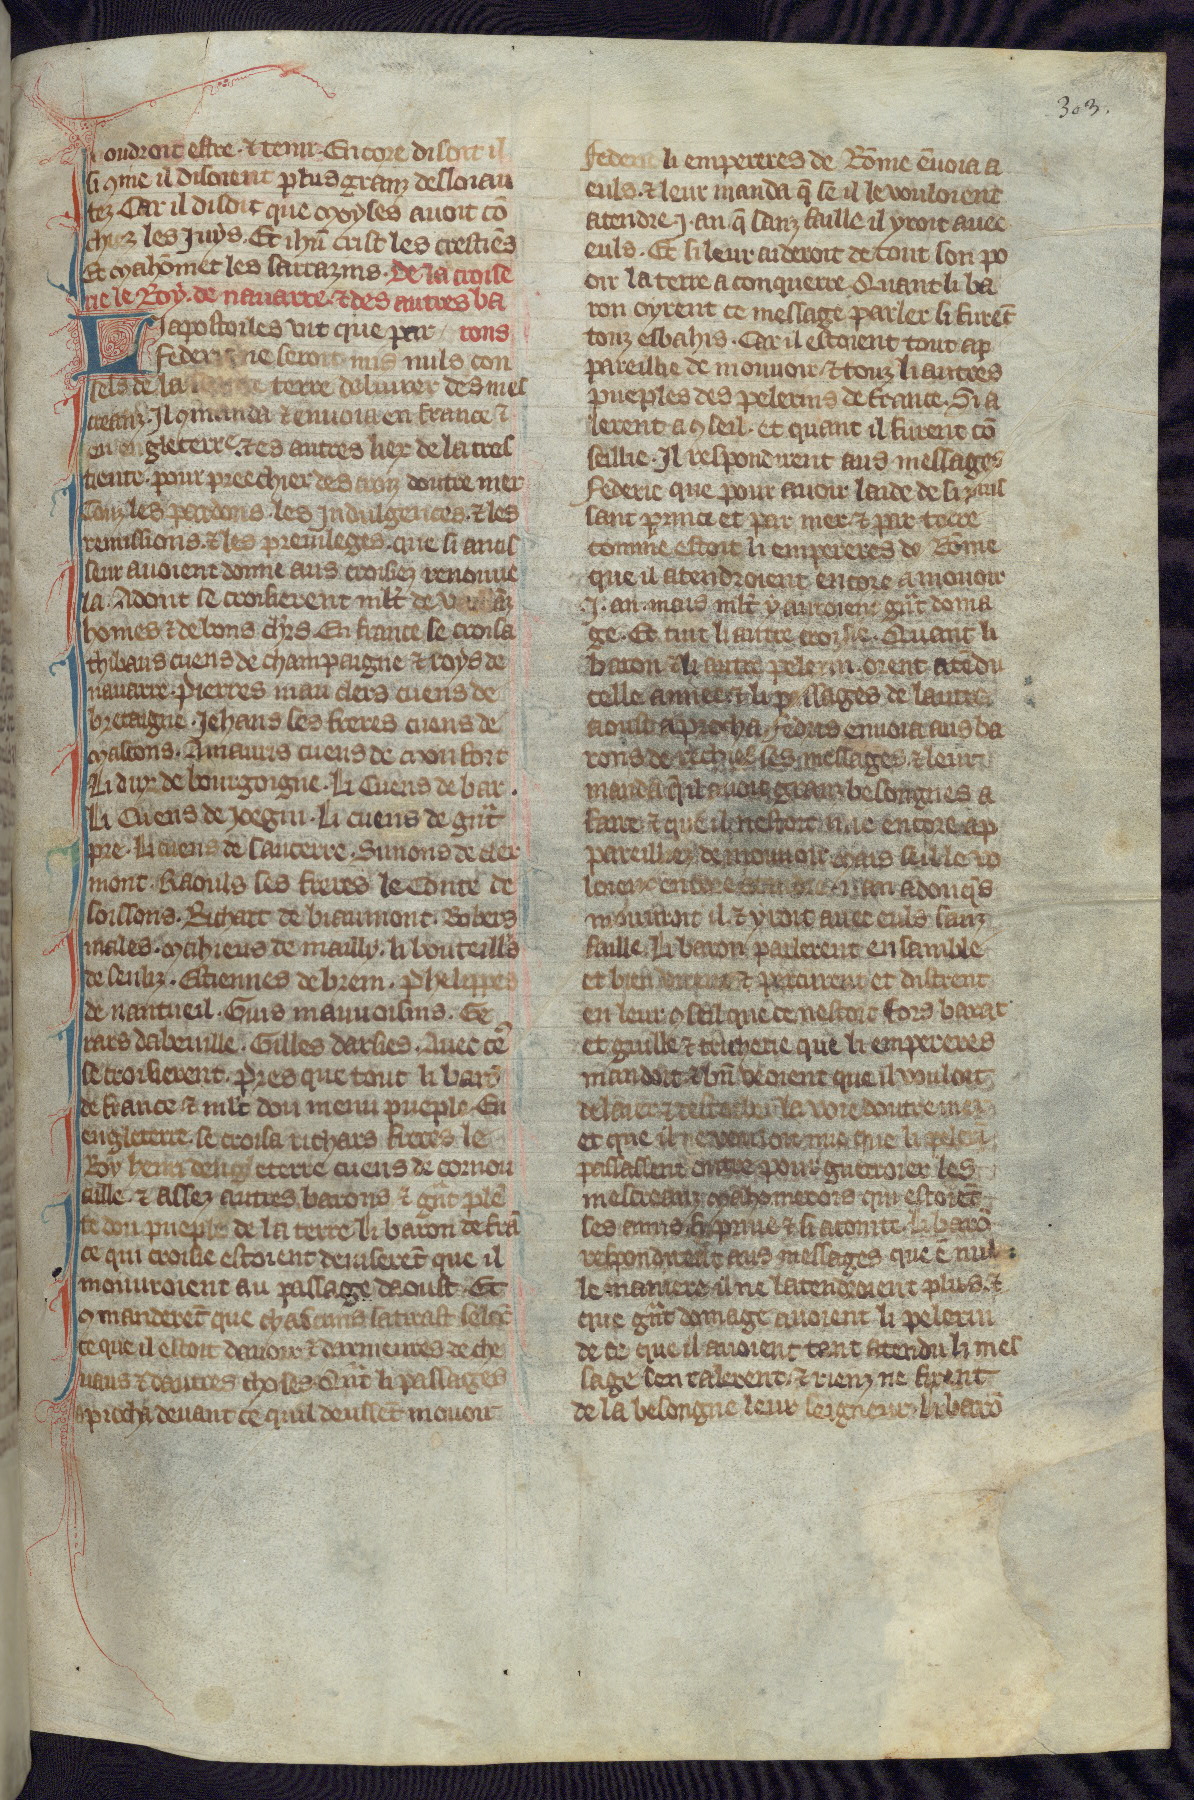 303.
uoudroit estre. ⁊ tenir. Encore disoit il
si ꝯme il disoient plus granz desloiau
tez Car il disoit que Moyses auoit cō
chiez les Juys. Et ihū crist les crestiēs
Et Mahōmet les sarrazins. De la croise
rie le Roy de nauarre. ⁊ des autres ba
Li apostoiles vit que par rons
Federic ne seroit mis nuls con
sels de la terre deliurer des mes
creanz. Il ꝯmanda ⁊ enuoia en france ⁊
en engleterre. ⁊ es autres liex de la cres
tiente. pour preechier des croiz doutre mer
Touz les pardons. les Indulgences. ⁊ les
remissions. ⁊ les preuileges. que si ances
seur auoient donne aus croisiez renouue
la. Adont se croisierent ml̄t de vaillāz
homes ⁊ de bons chrs. En france se croisa
thibaus cuens de champaigne ⁊ roys de
nauarre. Pierres mau clers cuens de
bretaigne. Jehans ses freres cuens de
Mascons. Amauris cuens de Monfort
Li dux de bourgoigne. Li Cuens de bar.
Li Cuens de Joegni. Li cuens de gūt
pre. Li cuens de sancerre. Symons de cler
mont. Raouls ses freres le Conte de
soissons. Richart de biaumont. Robers
males. Mahieus de mailly. li bouteills
de senliz. Estiennes de brem. Phelippes
de nantueil. Guis mauuoisins. Ge
rars dabeuille. Gilles darsies. Auec cē
se croisierent. pres que tout li barō
de france ⁊ ml̄t dou menu pueple. En
engleterre. se croisa richars freres le
Roy henri dengleterre cuens de cornou
aille. ⁊ assez autres barons ⁊ gūt plē
te dou pueple de la terre. Li baron de frā
ce qui croisie estoient deuiserēt que il
mouuroient au passage daoust. Et
ꝯmanderēt que chascuns satirast selōc
ce que il estoit dauoir ⁊ darmeures de che
uaus ⁊ dautres choses. Qūt li passages
aprocha deuant ce quil deussēt mouoir
Federic li empereres de Rōme ēuoia a
euls. ⁊ leur manda q̄ se il le vouloient
atendre .J. an q̄ sanz faille il yroit auec
euls. Et si leur aideroit de tout son po
oir la terre a conquerre. Quant li ba
ron oyrent ce message parler si furēt
touz esbahis. Car il estoient tout ap
pareillie de mouuoir. ⁊ touz li autres
pueples des pelerins de france. Si a
lerent a ꝯseil. et quant il furent cō
seillie. Il respondirent aus messages
Federic que pour auoir laide de si puis
sant prince et par mer ⁊ par terre
comme estoit li empereres de Rōme
que il atendroient encore a mouoir
.J. an. mais ml̄t y auroient gūt doma
ge. Et tuit li autre croisie. Quant li
baron ⁊ li autre pelerin. orent atēdu
celle annee. ⁊ li passages de lautre
aoust aprocha. fedris enuoia aus ba
rons de rechief ses messages. ⁊ leur
manda q̄ il auoit granz besoingnes a
faire ⁊ que il nestoit mie encore ap
pareilliez de mouuoir. mais se il le vo
loient encore atendre .J. an adonq̄s
mouuroit il. ⁊ yroit auec euls sanz
faille. Li baron parlerent ensamble
et bien ⁊ percurent et distrent
en leur ꝯseil que ce nestoit fors barat
et guille ⁊ tricherie que li empereres
mandoit. ⁊ bn̄ veoient que il vouloit
delaier ⁊ la voie doutre mer
et que il ne vouloit mie que li pelerī
passassent outre pour guerroier les
mescreanz Mahommetois qui estoiēt
ses amis si priue ⁊ si acointe. Li barō
respondirent aus messages que ē nul
le maniere il ne latendroient plus. ⁊
que gūt domage auoient li pelerin
de ce que il auoient tant atendu li mes
sage sen ralerent. ⁊ rienz ne firent
de la besoingne leur seigneur. Li barō